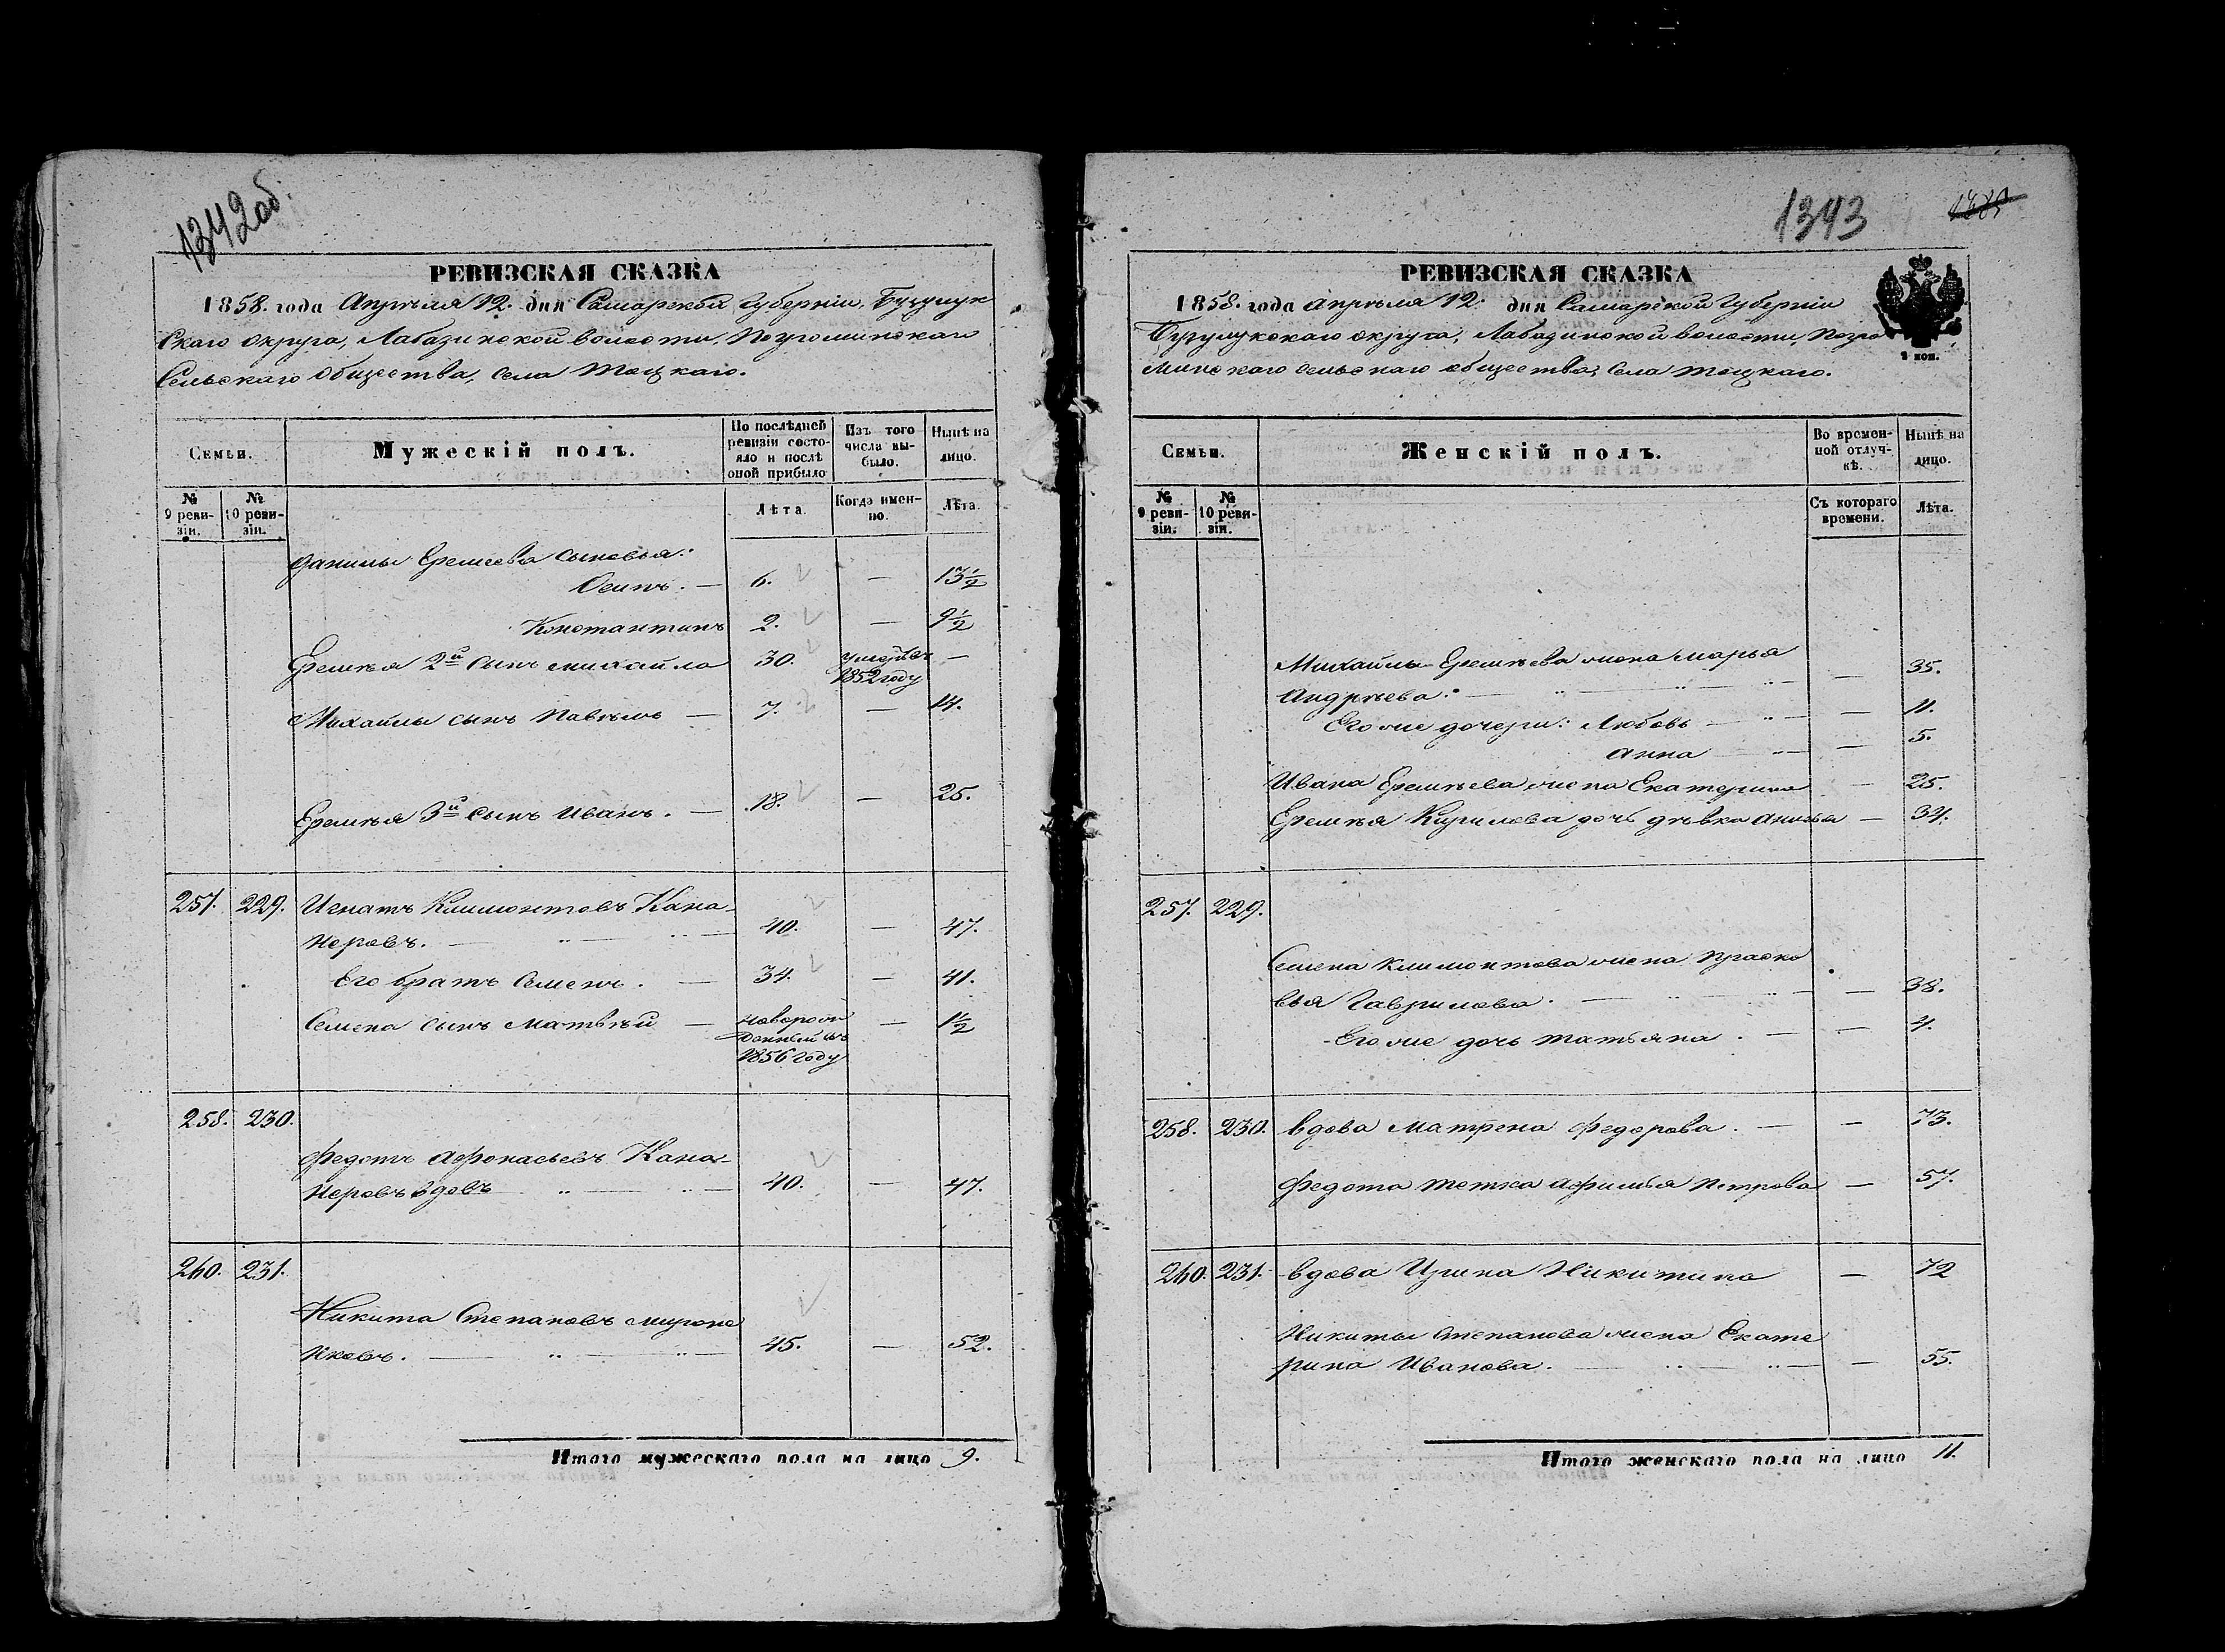 1342об.
РЕВИЗСКАЯ СКАЗКА
1858. года Апрѣля 12. дня Самарской Губерніи, Бузулук
скаго округа, Лабазинской волости, Погроминскаго
Сельскаго Общества, села Тоцкаго.
Семьи.
Мужескій полъ.
По послѣдней ревизіи состояло и послѣ оной прибыло
Изъ того числа выбыло.
Нынѣ на лицо.
№ 9 ревизіи.
№ 10 ревизіи.
Лѣта.
Когда именно.
Лѣта.
Данилы Еремеева сыновья:
Осипъ. — 6. — 13½
Константинъ 2. — 9½
Еремѣя 2й сынъ Михайло 30. умеръ въ 1852 году —
Михайлы сынъ Павелъ — 7. — 14.
Еремѣя 3й сынъ Иванъ. — 18. — 25.
257. 229. Игнатъ Климонтовъ Кана-
неровъ. — 40. — 47.
Его братъ Семенъ. — 34. — 41.
Семена сынъ Матвѣй — новорож
денный въ — 1½
1856 году
258. 230.
Федотъ Афонасьевъ Кана-
неровъ вдовъ 40. — 47.
260. 231.
Никита Степановъ Мироне
нковъ. — 45. — 52.
Итого мужескаго пола на лицо 9.
1343
РЕВИЗСКАЯ СКАЗКА
1858. года апрѣля 12. дня Самарской Губерніи
Бузулукскаго округа, Лабазинской волости, Погро
минскаго сельскаго общества, села Тоцкаго.
2 коп.
Семьи.
Женскій полъ.
Во временной отлучкѣ.
Нынѣ на лицо.
№ 9 ревизіи.
№ 10 ревизіи.
Съ котораго времени.
Лѣта.
Михайлы Еремѣева жена Марья
Андрѣева. — 35.
Его же дочери: Любовь — 11.
Анна — 5.
Ивана Еремѣева жена Екатерина — 25.
Еремѣя Кирилова дочь дѣвка Анисья — 34.
257. 229.
Семена Климонтова жена Праско
вья Гаврилова. — 38.
Его же дочь Татьяна. — 4.
258. 230. Вдова Матрена Федорова. — 73.
Федота тетка Афимья Петрова — 57.
260. 231. Вдова Ирина Никитина — 72
Никиты Степанова жена Екате
рина Иванова. — 55.
Итого женскаго пола на лицо 11.